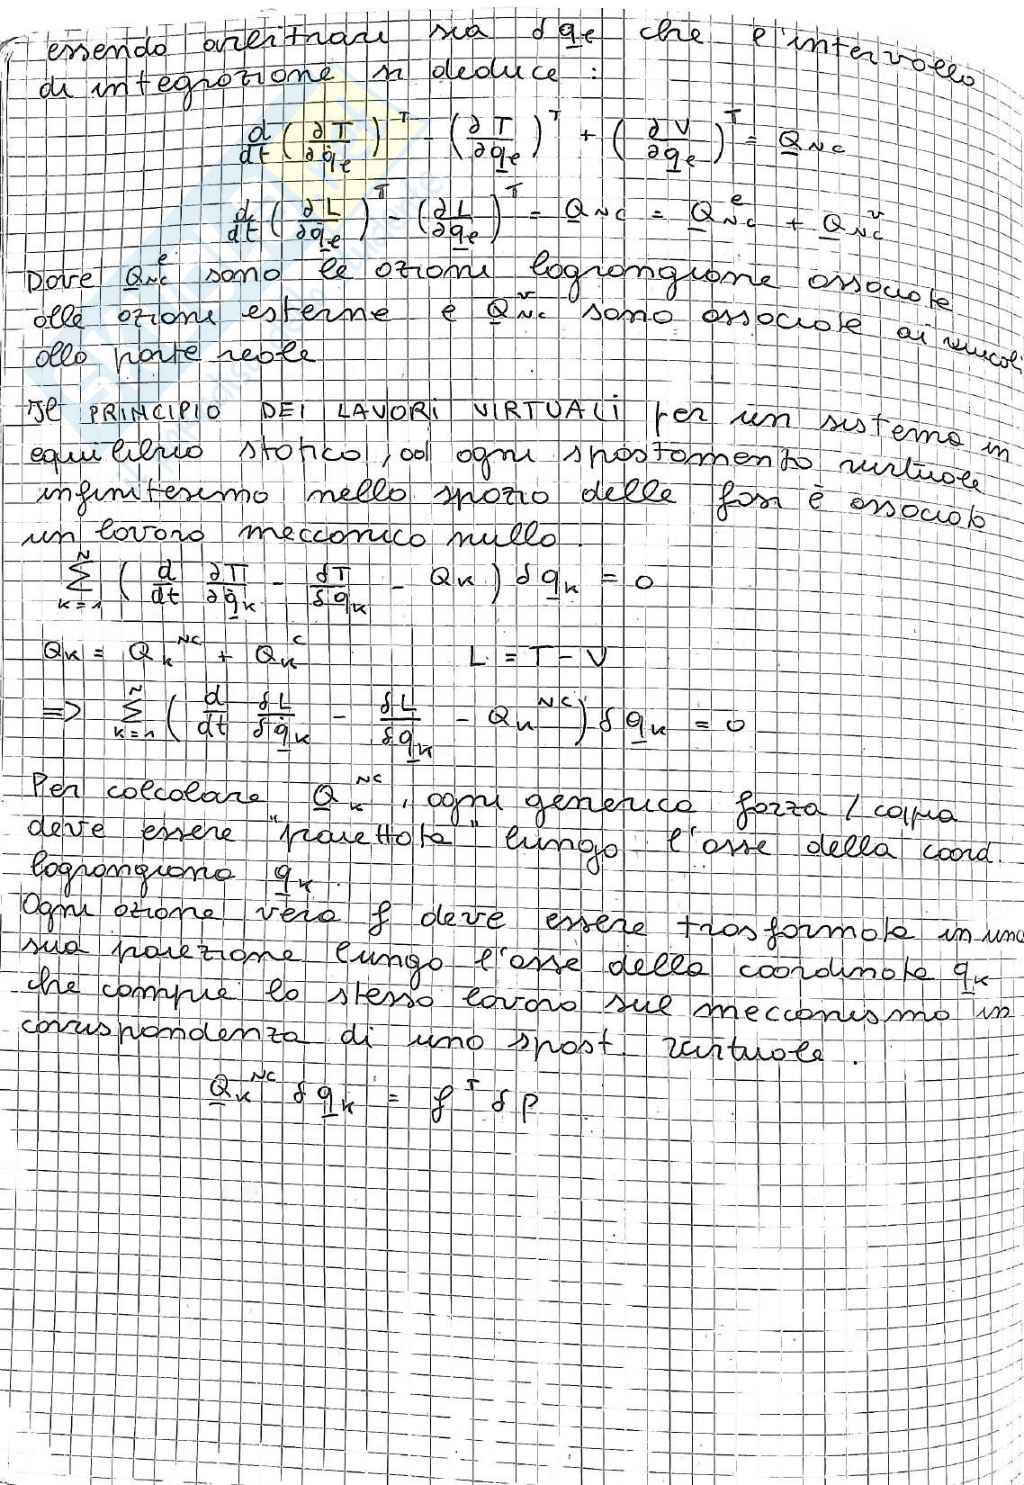 essendo arbitrari sia δq_e che l'intervallo
di integrazione si deduce :
d/dt (∂T/∂q̇_e)^T - (∂T/∂q_e)^T + (∂V/∂q_e)^T = Q_NC
d/dt (∂L/∂q̇_e)^T - (∂L/∂q_e)^T = Q_NC = Q_NC^e + Q_NC^v
Dove Q_NC^e sono le azioni lagrangiane associate
alle azioni esterne e Q_NC^v sono associate ai vincoli
alla parte reale
Il PRINCIPIO DEI LAVORI VIRTUALI per un sistema in
equilibrio statico, ad ogni spostamento virtuale
infinitesimo nello spazio delle fasi è associato
un lavoro meccanico nullo.
Σ_{k=1}^{N} ( d/dt ∂T/∂q̇_k - δT/δq_k - Q_k ) δq_k = 0
Q_k = Q_k^NC + Q_k^C L = T - V
=> Σ_{k=1}^{N} ( d/dt δL/δq̇_k - δL/δq_k - Q_k^NC ) δq_k = 0
Per calcolare Q_k^NC, ogni generica forza / coppia
deve essere "proiettata" lungo l'asse della coord.
lagrangiana q_k.
Ogni azione vera f deve essere trasformata in una
sua proiezione lungo l'asse della coordinata q_k
che compie lo stesso lavoro sul meccanismo in
corrispondenza di uno spost. virtuale.
Q_k^NC δq_k = f^T δp